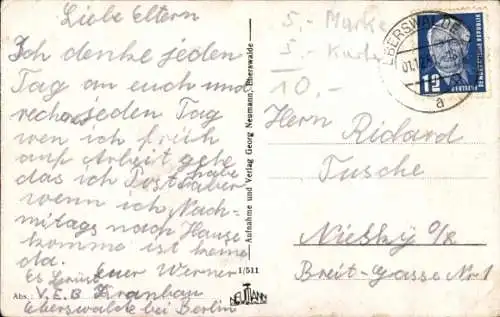 Liebe Eltern
Ich denke jeden
Tag an euch und
rechne jeden Tag
wen ich früh
auf Arbeit gehe
das ich Post habe
aber
wenn ich Nach-
mitags nach Hause
komme ist keine
da.
Es Grüst euer Werner
Abs.: V.E.B Kranbau
Eberswalde bei Berlin
Aufnahme und Verlag Georg Neumann, Eberswalde
1/511
NEUMANN
5,- Marke
5,- Karte
10,-
EBERSWALDE
a
DEUTSCHE POST
12
Herrn Richard
Tusche
Niesky O/L
Breit-Gasse Nr 1